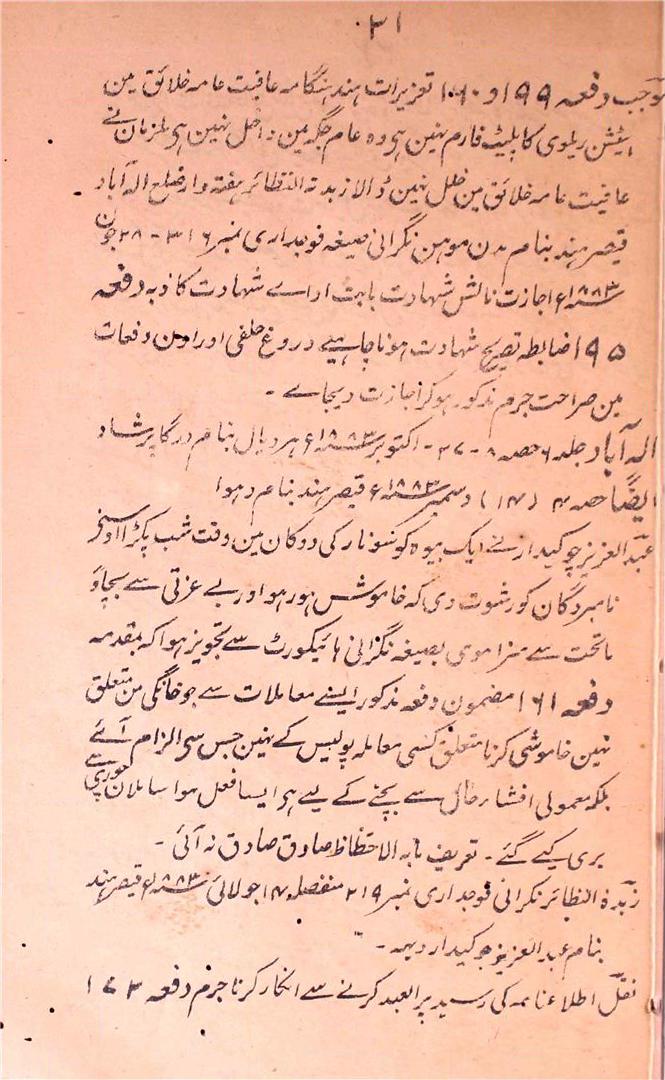 ۳۱
بموجب دفعہ ۱۹۹ و ۱۶۰ تعزیرات ہند ہنگامہ عافیت عامہ خلائق مین
اسٹیشن ریلوی کا پلیٹ فارم نہین ہی وہ عام جگہ مین داخل نہین ہی ملزمان نے
عافیت عامہ خلائق مین خلل نہین ڈالا زبدۃ النظائر ہفتہ وار ضلع الہ آباد
قیصر ہند بنام مدن موہن نگرانی صیغہ فوجداری نمبر ۳۱۶ - ۲۸ جون
۱۸۸۳ء اجازت نالش شہادت بابت اداے شہادت کاذبہ دفعہ
۱۹۵ ضابطہ تصریح شہادت ہونا چاہیے دروغ حلفی اور اون دفعات
مین صراحت جرم مذکور ہوکر اجازت دیجاے -
الہ آباد جلد ۶ حصہ ۸ - ۲۷ - اکتوبر ۱۸۸۳ء ہردیال بنام درگا پرشاد
ایضًا حصہ ۴ (۱۷) دسمبر ۱۸۸۳ء قیصر ہند بنام دہوا
عبد العزیز چوکیدار نے ایک بیوہ کو سونار کی دوکان مین وقت شب پکڑا اوسنے
نامبردگان کو رشوت دی کہ خاموش ہو رہو اور بے عزتی سے بچاؤ
ماتحت سے سزا ہوی بصیغہ نگرانی ہائیکورٹ سے تجویز ہوا کہ بمقدمہ
دفعہ ۱۶۱ مضمون دفعہ مذکور ایسے معاملات سے جو خانگی مین متعلق
نہین خاموشی کرنا متعلق کسی معاملہ پولیس کے نہین جس سی الزام آئے
بلکہ معمولی افشاء حال سے بچنے کے لیے ہی ایسا فعل ہوا سائلان سے
بری کیے گئے - تعریف مابہ الاحتظاظ صادق صادق نہ آئی -
زبدۃ النظائر نگرانی فوجداری نمبر ۲۱۹ منفصلہ ۱۷ جولائی ۱۸۸۳ء قیصر ہند
بنام عبد العزیز چوکیدار دیہہ -
نقل اطلاعنامہ کی رسید پر العبد کرنے سے انکار کرنا جرم دفعہ ۱۷۳